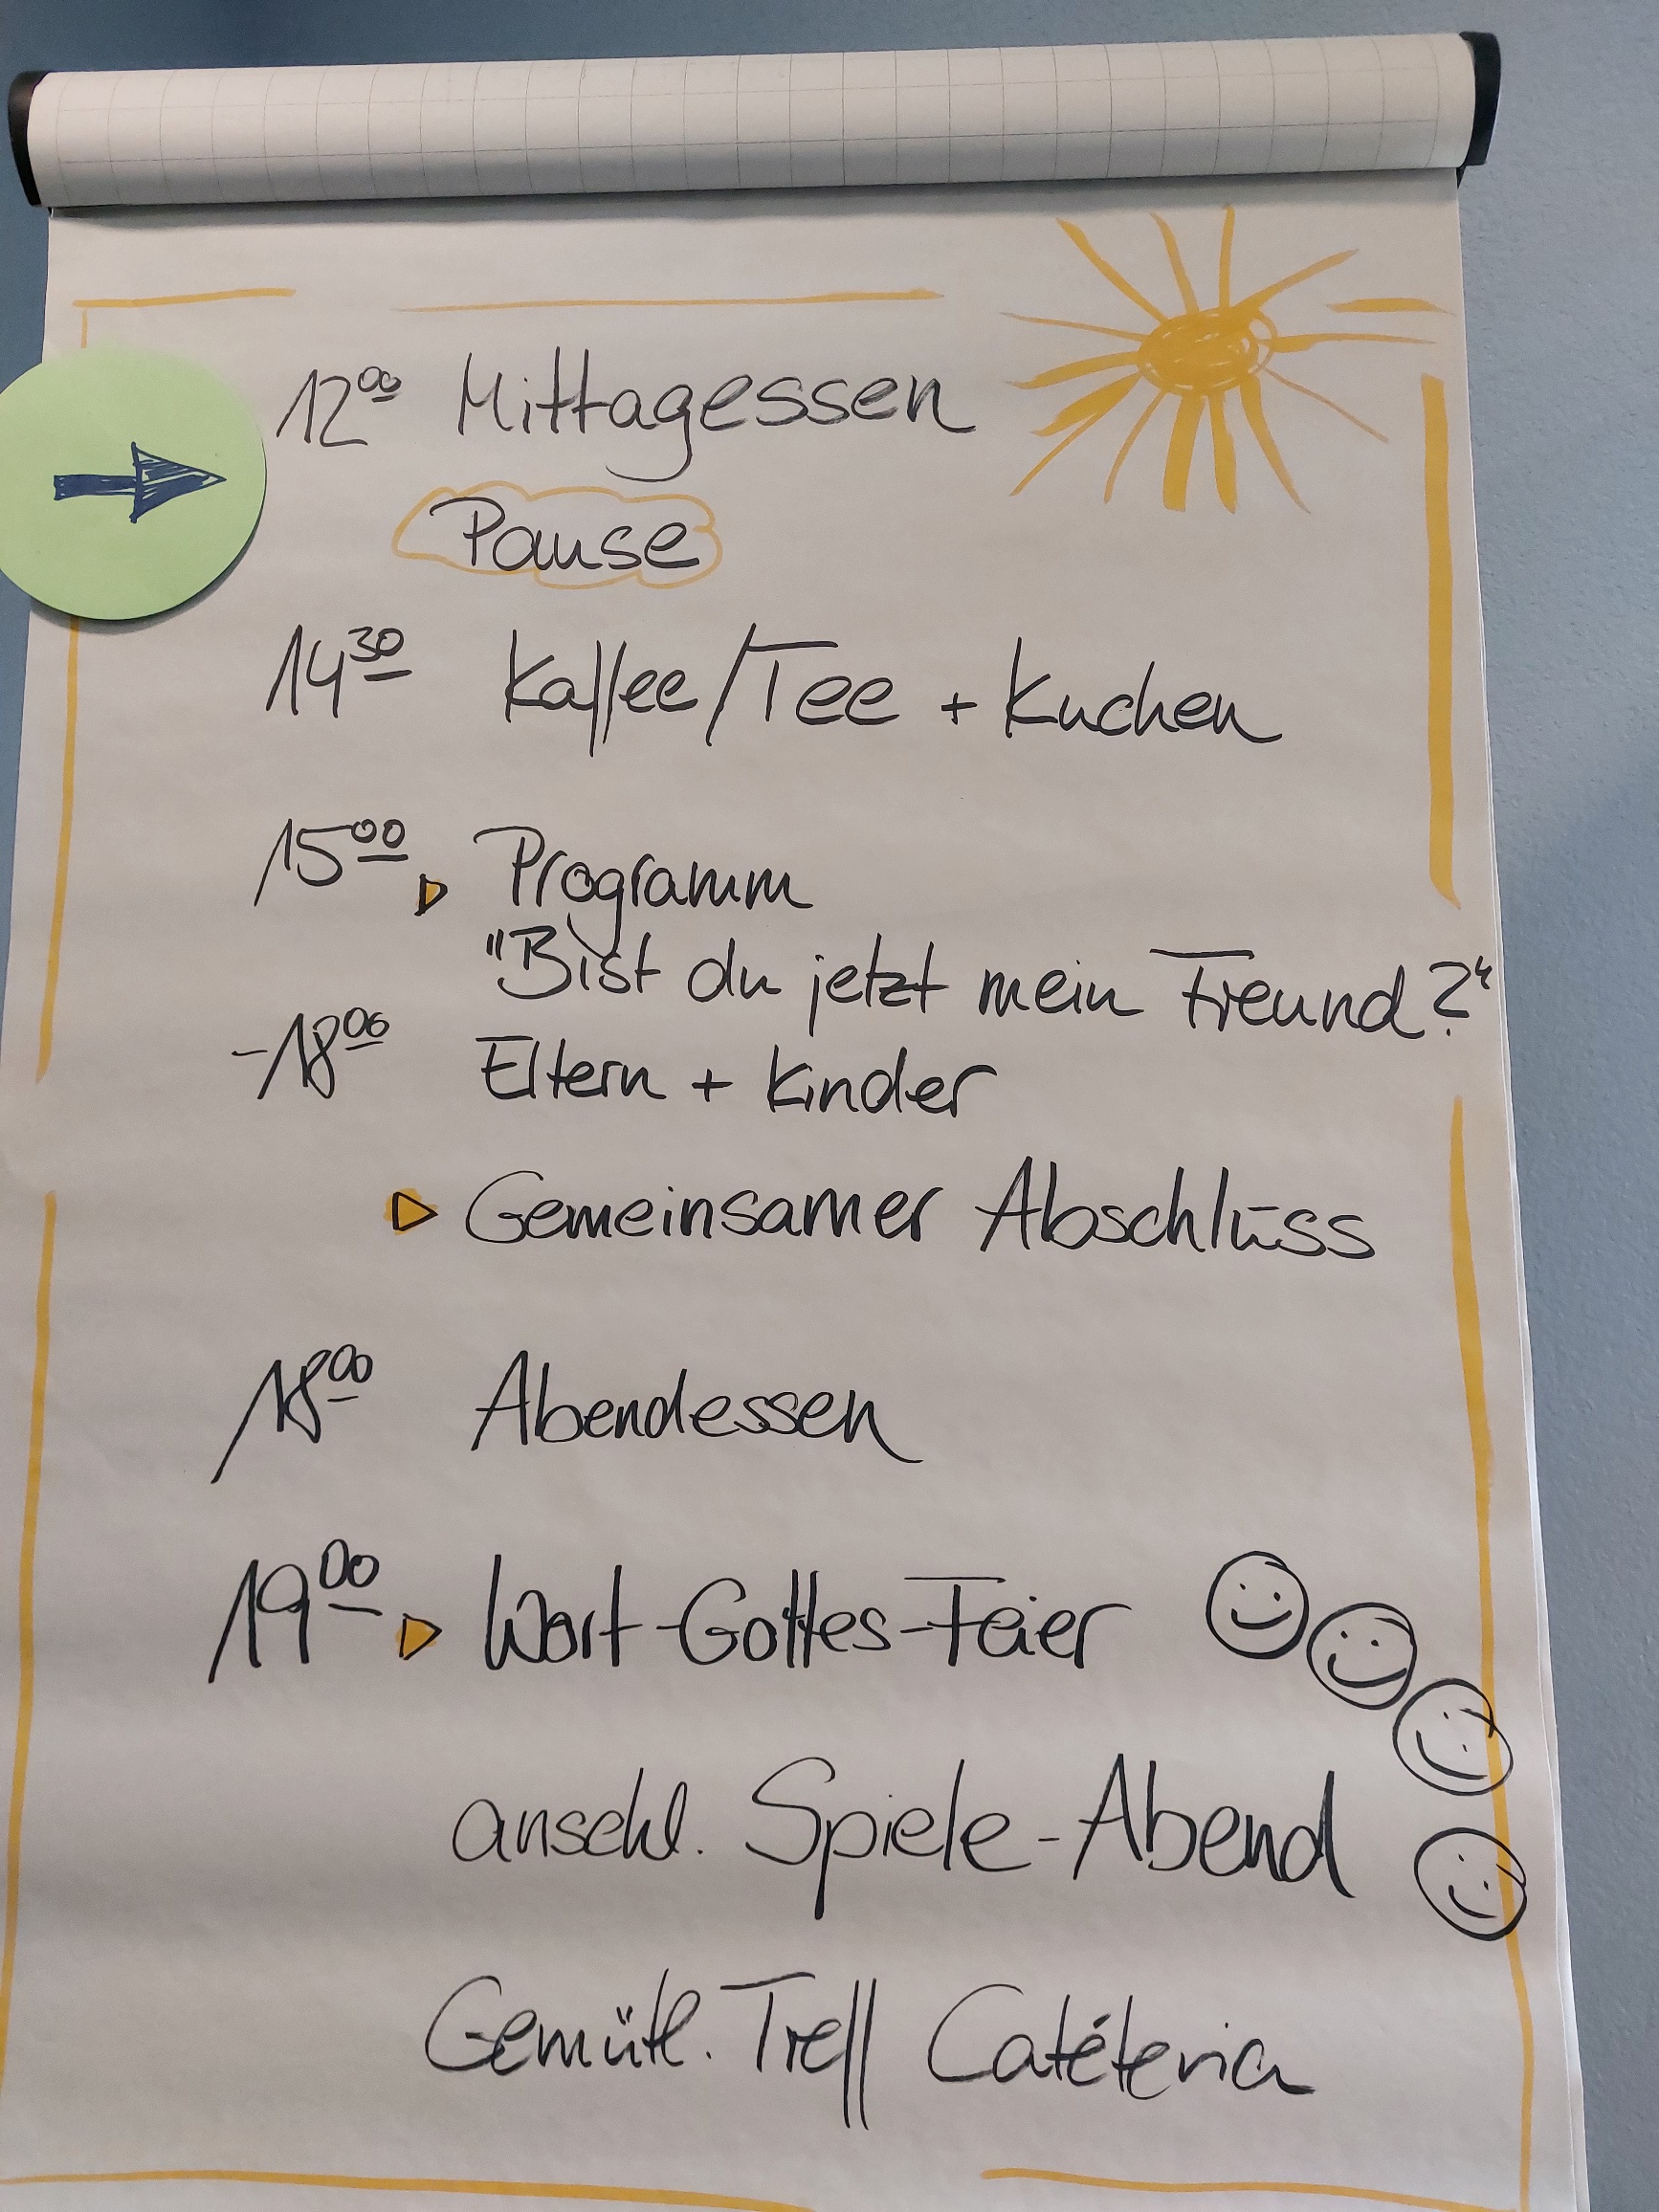 12⁰⁰ Mittagessen
Pause
14³⁰ Kaffee/Tee + Kuchen
15⁰⁰ Programm
"Bist du jetzt mein Freund?"
-18⁰⁰ Eltern + Kinder
Gemeinsamer Abschluss
18⁰⁰ Abendessen
19⁰⁰ Wort-Gottes-Feier
anschl. Spiele-Abend
Gemütl. Treff Caféteria